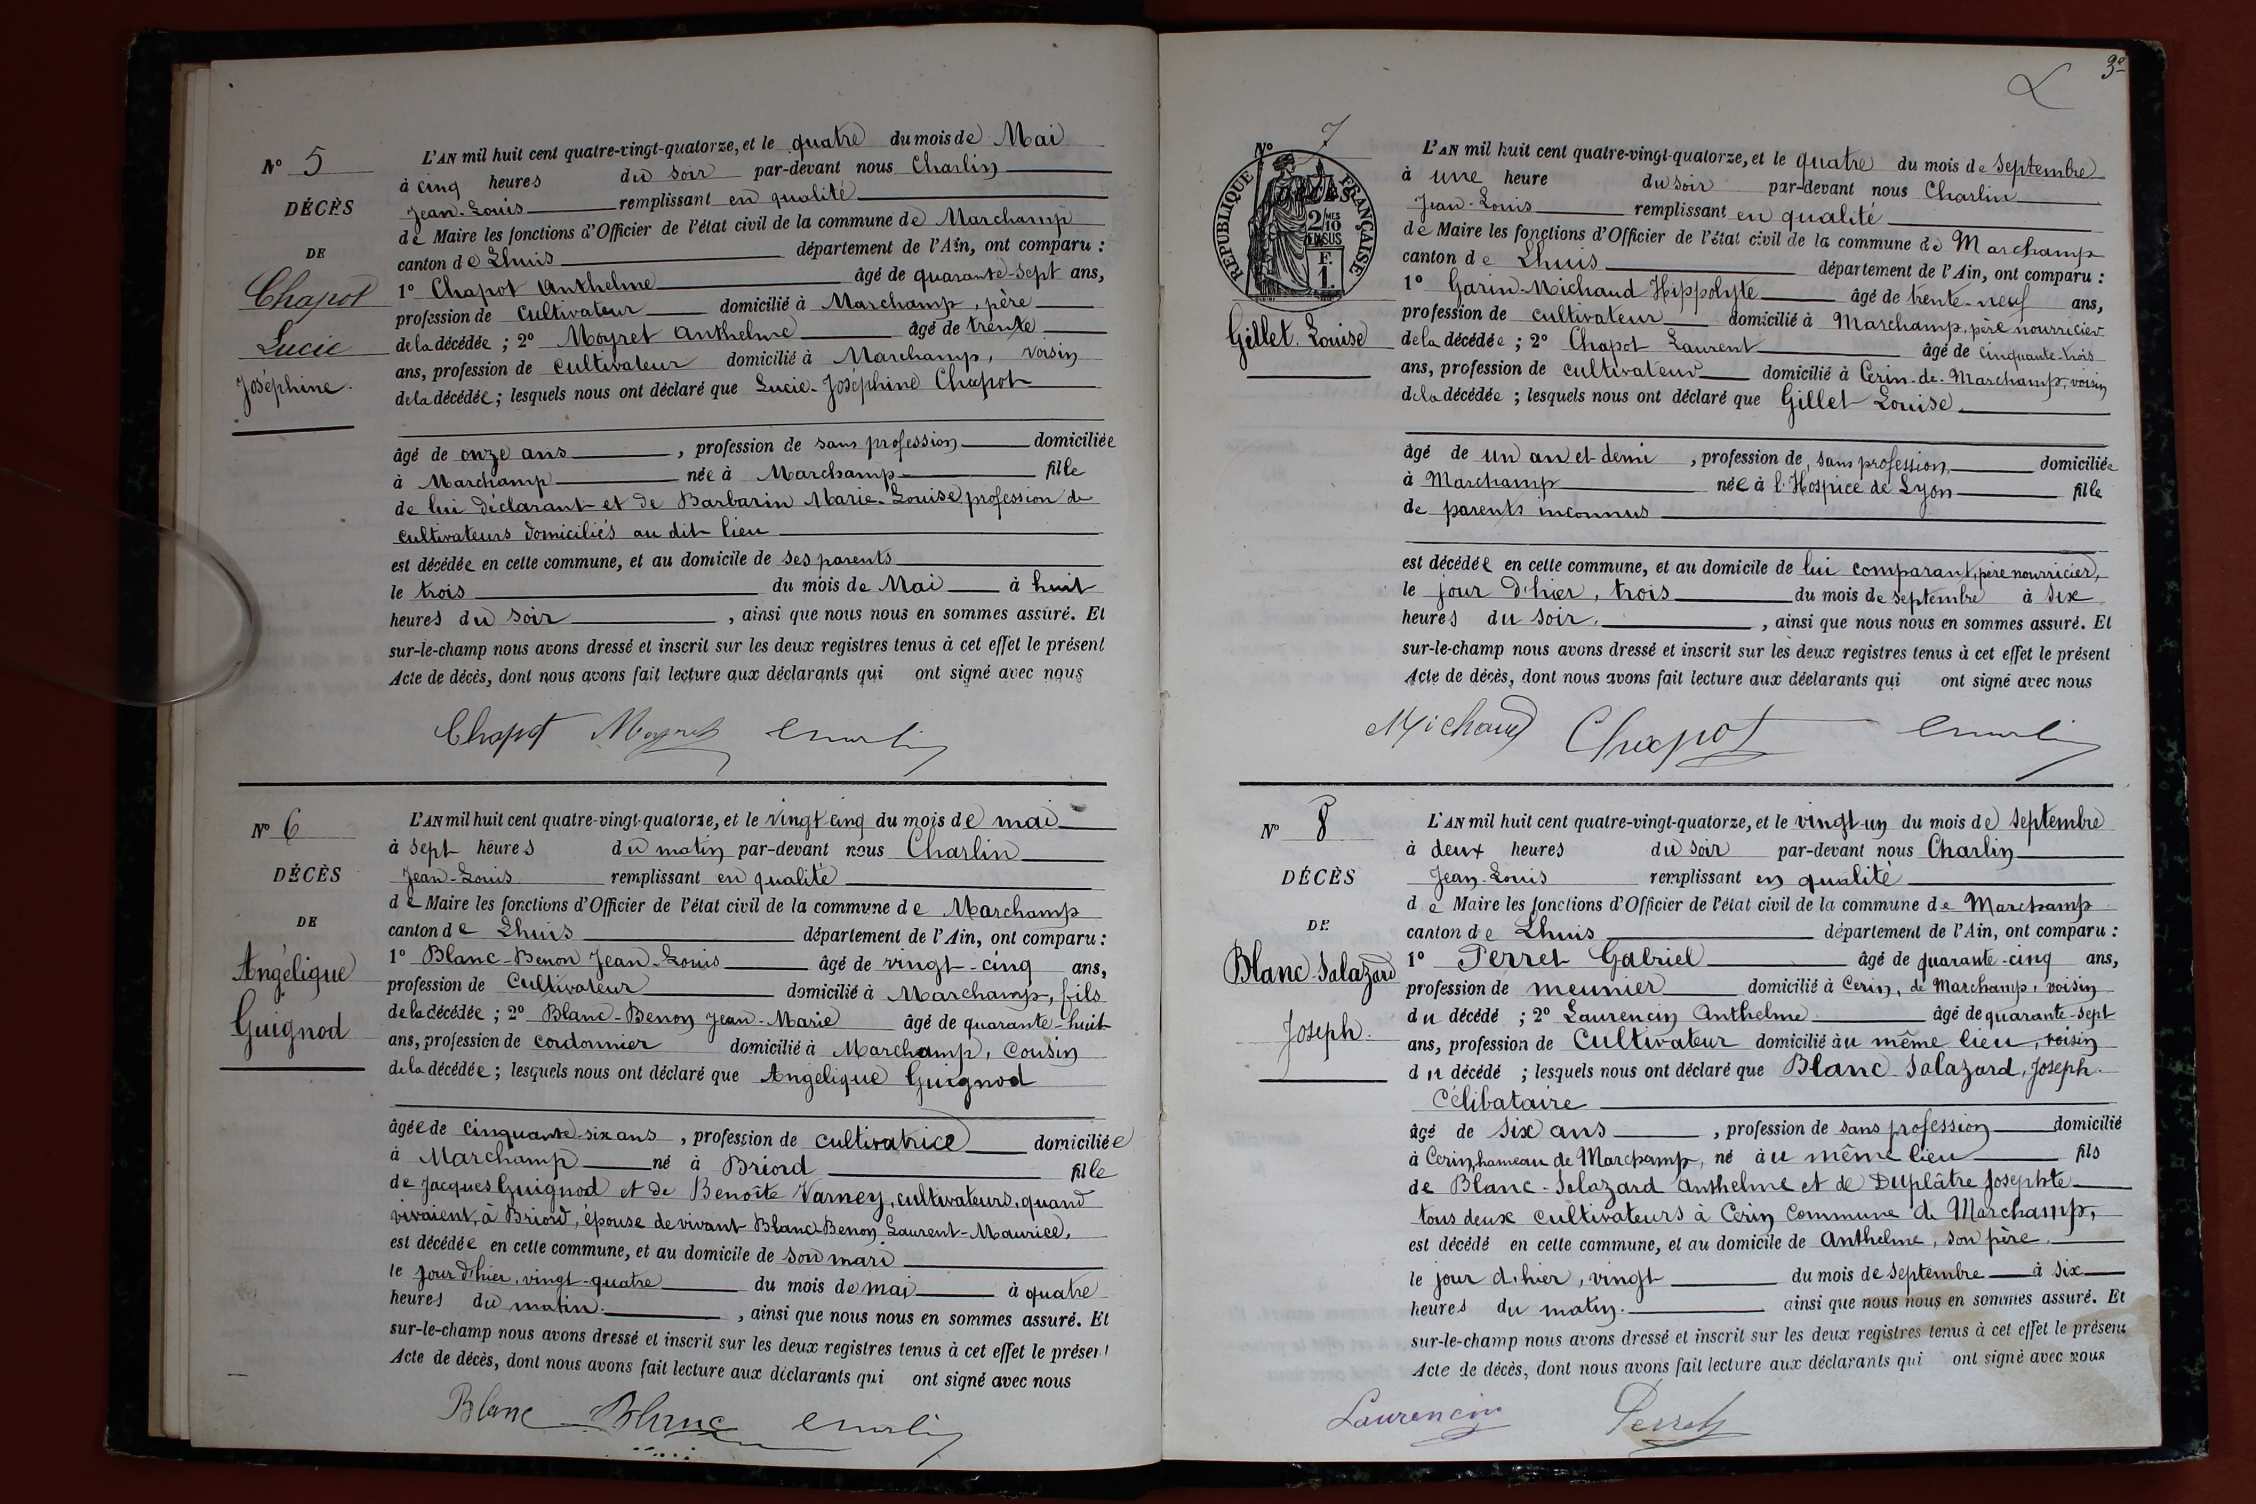 Nº 5
DÉCÈS
DE
Chapot
Lucie
Joséphine.
L'AN mil huit cent quatre-vingt-quatorze, et le quatre du mois de Mai
à cinq heures du soir par-devant nous Charlin
Jean-Louis remplissant en qualité
de Maire les fonctions d'Officier de l'état civil de la commune de Marchamp
canton de Lhuis département de l'Ain, ont comparu :
1º Chapot Anthelme âgé de quarante-sept ans,
profession de cultivateur domicilié à Marchamp, père
de la décédée ; 2º Moyret Anthelme âgé de trente
ans, profession de cultivateur domicilié à Marchamp, voisin
de la décédée ; lesquels nous ont déclaré que Lucie-Joséphine Chapot
âgé de onze ans , profession de sans profession domiciliée
à Marchamp née à Marchamp fille
de lui déclarant et de Barbarin Marie-Louise profession de
cultivateurs domiciliés au dit lieu
est décédée en cette commune, et au domicile de ses parents
le trois du mois de Mai à huit
heures du soir , ainsi que nous nous en sommes assuré. Et
sur-le-champ nous avons dressé et inscrit sur les deux registres tenus à cet effet le présent
Acte de décès, dont nous avons fait lecture aux déclarants qui ont signé avec nous
Chapot Moyret Charlin
Nº 6
DÉCÈS
DE
Angélique
Guignod
L'AN mil huit cent quatre-vingt-quatorze, et le vingt cinq du mois de mai
à sept heures du matin par-devant nous Charlin
Jean-Louis remplissant en qualité
de Maire les fonctions d'Officier de l'état civil de la commune de Marchamp
canton de Lhuis département de l'Ain, ont comparu :
1º Blanc-Benon Jean-Louis âgé de vingt-cinq ans,
profession de Cultivateur domicilié à Marchamp, fils
de la décédée ; 2º Blanc-Benon Jean-Marie âgé de quarante-huit
ans, profession de cordonnier domicilié à Marchamp, cousin
de la décédée ; lesquels nous ont déclaré que Angelique Guignod
âgée de cinquante-six ans , profession de cultivatrice domiciliée
à Marchamp né à Briord fille
de Jacques Guignod et de Benoîte Varney, cultivateurs, quand
vivaient, à Briord, épouse de vivant Blanc-Benon Laurent-Maurice,
est décédée en cette commune, et au domicile de son mari
le jour d'hier, vingt-quatre du mois de mai à quatre
heures du matin. , ainsi que nous nous en sommes assuré. Et
sur-le-champ nous avons dressé et inscrit sur les deux registres tenus à cet effet le présent
Acte de décès, dont nous avons fait lecture aux déclarants qui ont signé avec nous
Blanc Blanc Charlin
3e
Nº 7
RÉPUBLIQUE FRANÇAISE
2/10 MES
EN SUS
F.
1.
Gillet Louise
L'AN mil huit cent quatre-vingt-quatorze, et le quatre du mois de septembre
à une heure du soir par-devant nous Charlin
Jean-Louis remplissant en qualité
de Maire les fonctions d'Officier de l'état civil de la commune de Marchamp
canton de Lhuis département de l'Ain, ont comparu :
1º Garin-Michaud Hippolyte âgé de trente-neuf ans,
profession de cultivateur domicilié à Marchamp, père nourricier
de la décédée ; 2º Chapot Laurent âgé de cinquante-trois
ans, profession de cultivateur domicilié à Cerin-de-Marchamp, voisin
de la décédée ; lesquels nous ont déclaré que Gillet Louise
âgé de un an et demi , profession de, sans profession, domiciliée
à Marchamp née à l'Hospice de Lyon fille
de parents inconnus
est décédée en cette commune, et au domicile de lui comparant, père nourricier,
le jour d'hier, trois du mois de septembre à six
heures du soir. , ainsi que nous nous en sommes assuré. Et
sur-le-champ nous avons dressé et inscrit sur les deux registres tenus à cet effet le présent
Acte de décès, dont nous avons fait lecture aux déclarants qui ont signé avec nous
Michaud Chapot Charlin
Nº 8
DÉCÈS
DE
Blanc-Salazard
Joseph.
L'AN mil huit cent quatre-vingt-quatorze, et le vingt-un du mois de septembre
à deux heures du soir par-devant nous Charlin
Jean-Louis remplissant en qualité
de Maire les fonctions d'Officier de l'état civil de la commune de Marchamp
canton de Lhuis département de l'Ain, ont comparu :
1º Perret Gabriel âgé de quarante-cinq ans,
profession de meunier domicilié à Cerin, de Marchamp, voisin
du décédé ; 2º Laurencin Anthelme âgé de quarante-sept
ans, profession de Cultivateur domicilié au même lieu, voisin
du décédé ; lesquels nous ont déclaré que Blanc-Salazard, Joseph.
Célibataire
âgé de six ans , profession de sans profession domicilié
à Cerin, hameau de Marchamp, né au même lieu fils
de Blanc-Salazard Anthelme et de Duplâtre Josephte
tous deux cultivateurs à Cerin Commune de Marchamp,
est décédé en cette commune, et au domicile de Anthelme, son père.
le jour d'hier, vingt du mois de septembre à six
heures du matin. ainsi que nous nous en sommes assuré. Et
sur-le-champ nous avons dressé et inscrit sur les deux registres tenus à cet effet le présent
Acte de décès, dont nous avons fait lecture aux déclarants qui ont signé avec nous
Laurencin Perret